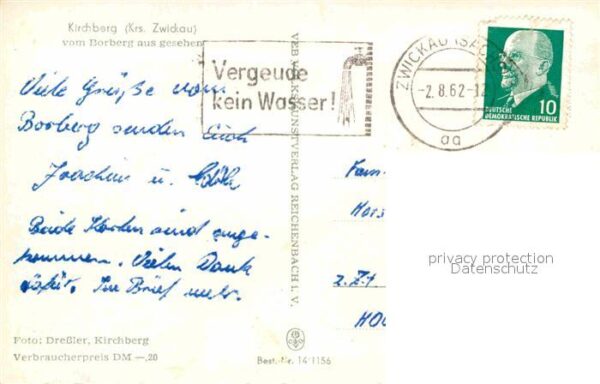 Kirchberg (Krs. Zwickau)
vom Borberg aus gesehen
Vergeude
kein Wasser!
ZWICKAU (SACHS
-2.8.62-12
aa
10
DEUTSCHE
DEMOKRATISCHE REPUBLIK
Viele Grüße vom
Borberg senden Euch
Joachim u.
Beide Karten sind ange-
kommen. Vielen Dank
dafür. Im Brief mehr.
VEB VOLKSKUNSTVERLAG REICHENBACH I. V.
Fam
Hors
z. Zt
privacy protection
Datenschutz
Foto: Dreßler, Kirchberg
Verbraucherpreis DM —,20
Best.-Nr. 14/1156